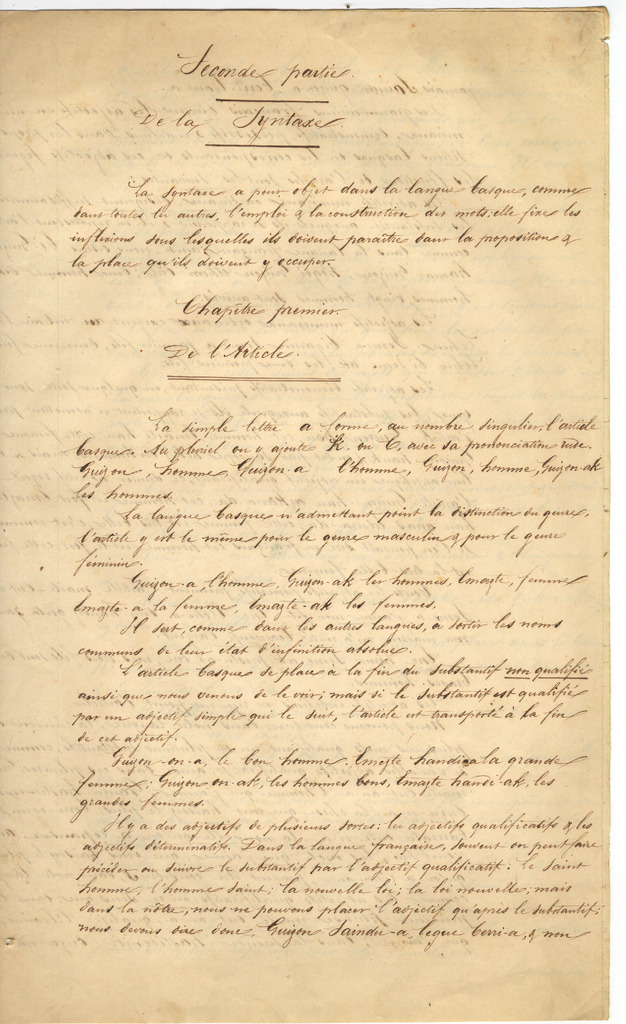 Seconde partie.
De la Syntaxe.
La syntaxe a pour objet dans la langue basque, comme
dans toutes les autres, l'emploi & la construction des mots; elle fixe les
inflexions sous lesquelles ils doivent paraître dans la proposition &
la place qu'ils doivent y occuper.
Chapître premier.
De l'Article.
La simple lettre a forme, au nombre singulier, l'article
basque. Au pluriel on y ajoute K. ou C, avec sa prononciation rude.
Guizon, homme, Guizon-a l'homme, Guizon, homme, Guizon-ak
les hommes.
La langue basque n'admettant point la distinction du genre,
l'article y est le même pour le genre masculin & pour le genre
féminin.
Guizon-a, l'homme, Guizon-ak les hommes, Emazte, femme
Emazte-a la femme, Emazte-ak les femmes.
Il sert, comme dans les autres langues, à sortir les noms
communs de leur état d'infinition absolue.
L'article basque se place à la fin du substantif non qualifié
ainsi que nous venons de le voir; mais si le substantif est qualifié
par un adjectif simple qui le suit, l'article est transporté à la fin
de cet adjectif.
Guizon-on-a, le bon homme. Emazte handi-a la grande
femme; Guizon on-ak, les hommes bons, Emazte handi-ak, les
grandes femmes.
Il y a des adjectifs de plusieurs sortes: les adjectifs qualificatifs & les
adjectifs déterminatifs. Dans la langue française, souvent on peut faire
précéder ou suivre le substantif par l'adjectif qualificatif: le saint
homme, l'homme saint; la nouvelle loi; la loi nouvelle; mais
dans la nôtre, nous ne pouvons placer l'adjectif qu'après le substantif;
nous devons dire donc, Guizon Saindu-a, legue berri-a, & non